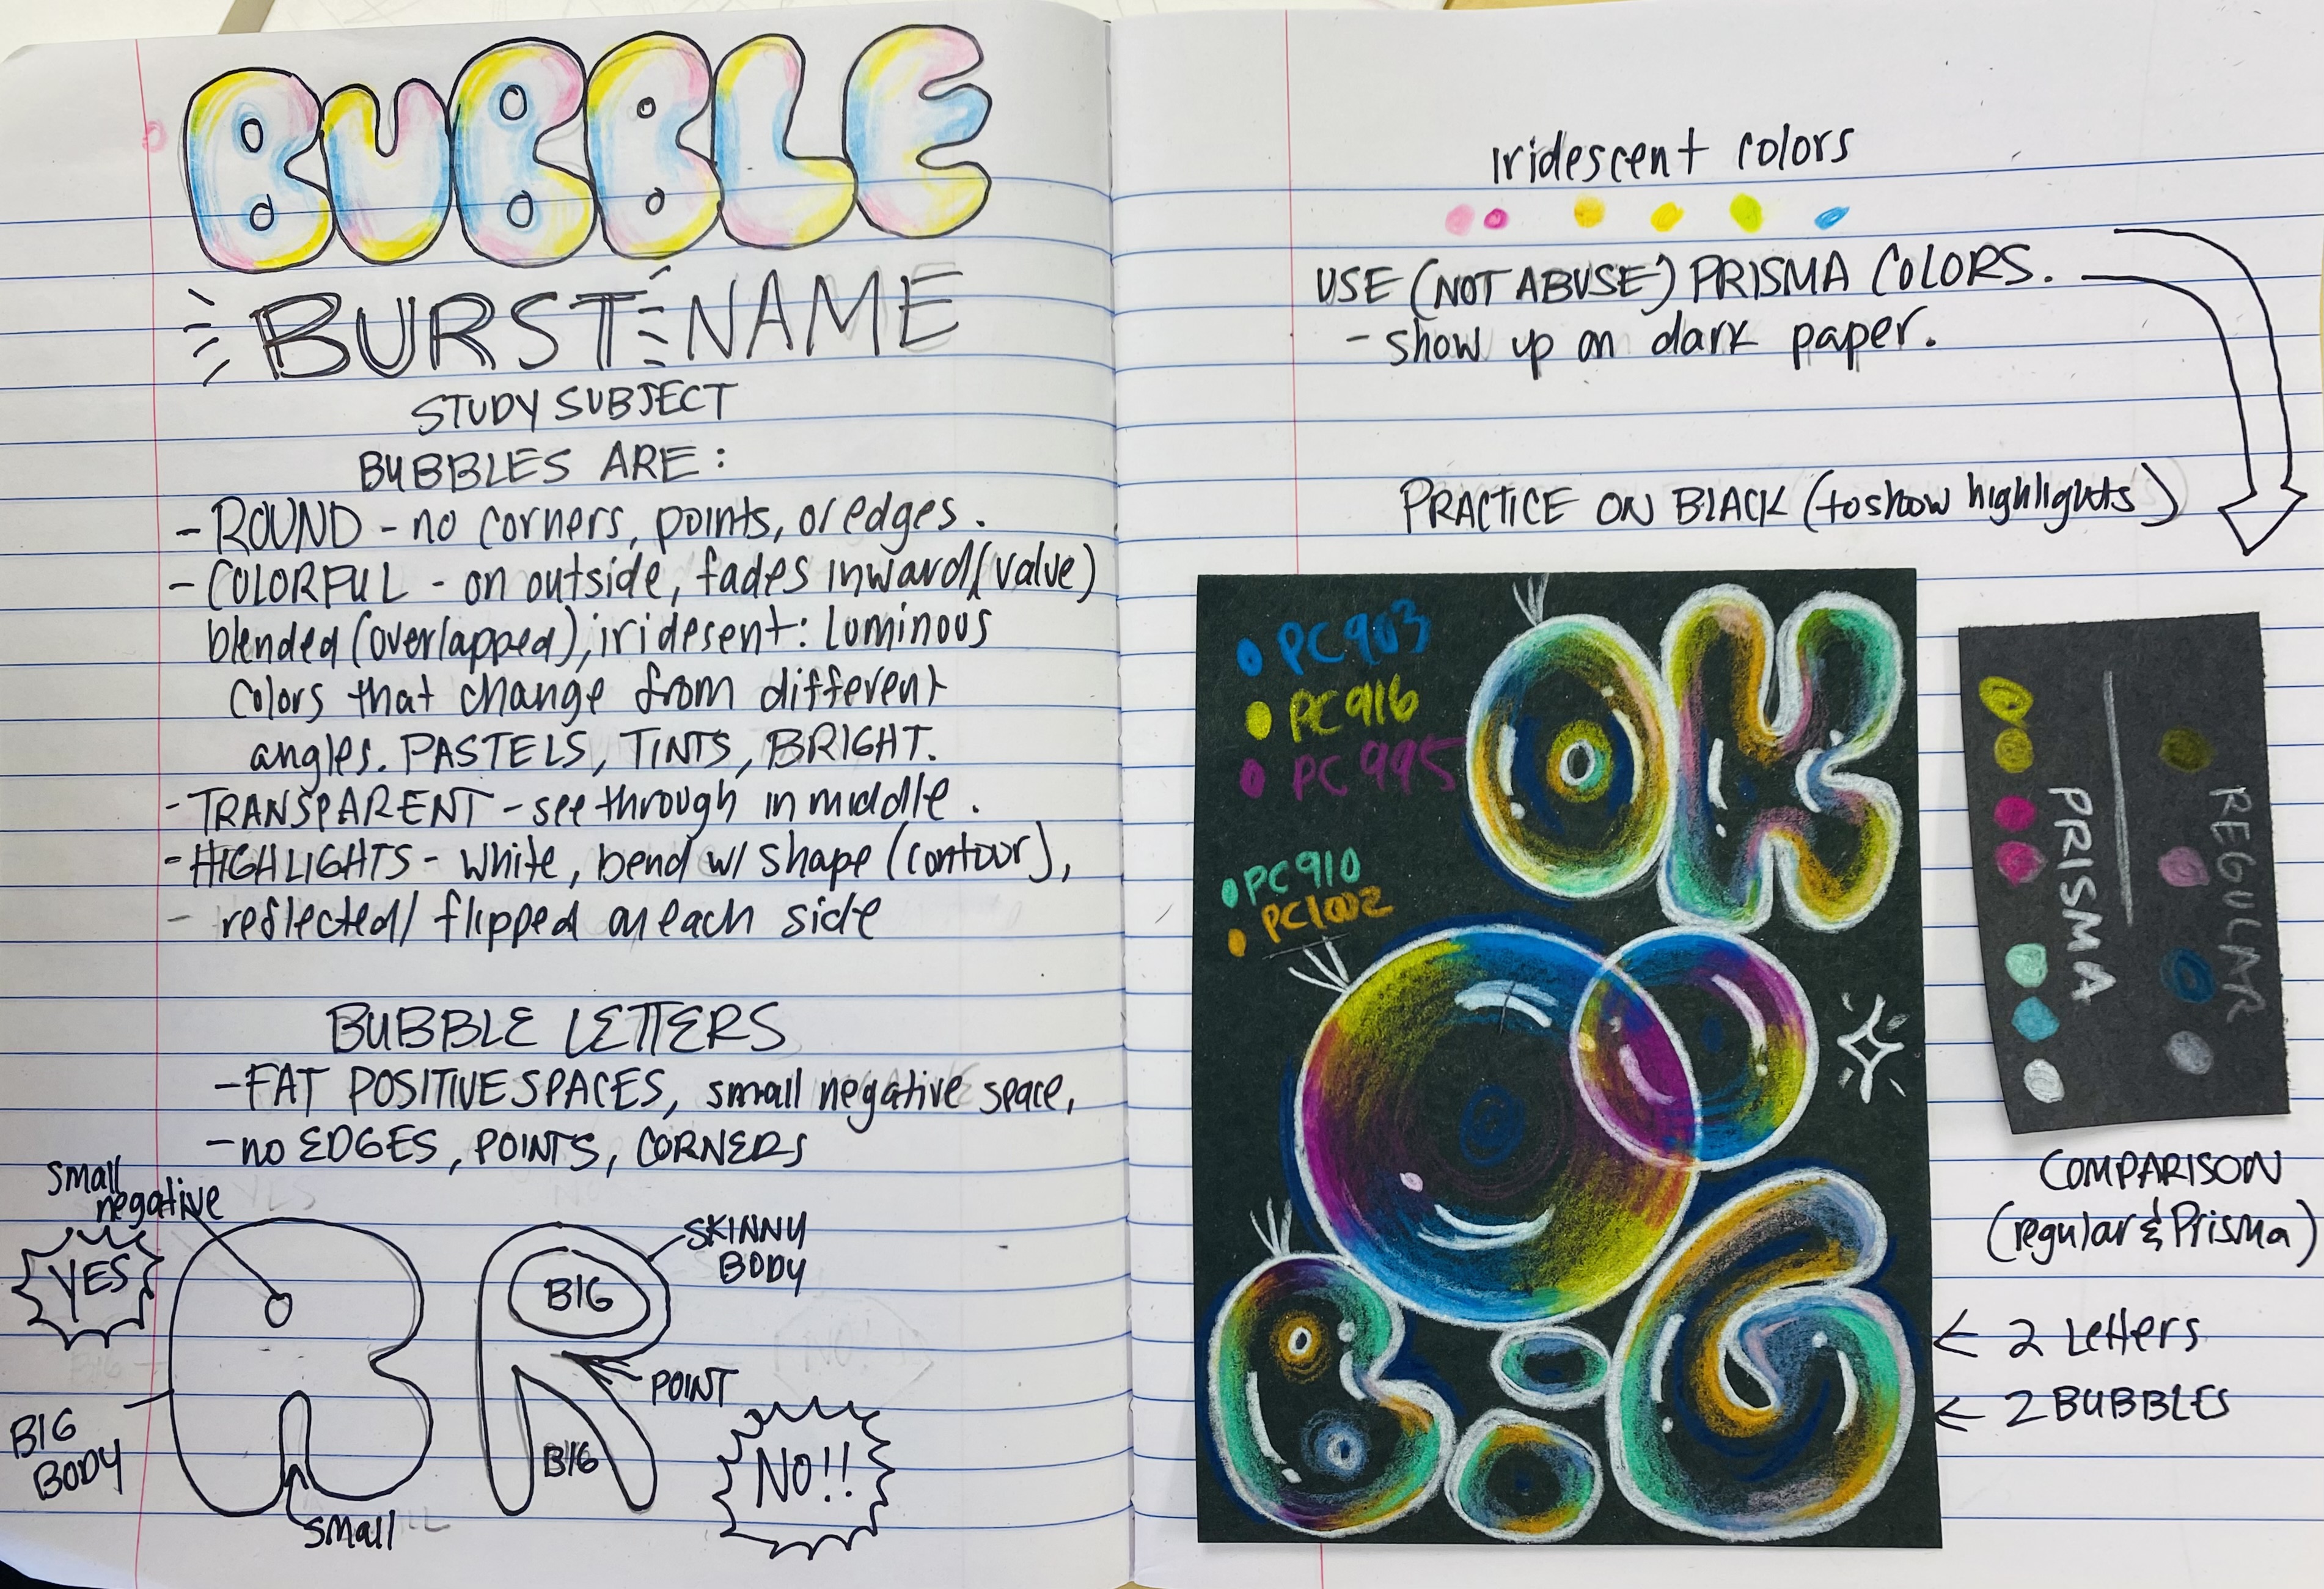 BUBBLE
BURST NAME
STUDY SUBJECT
BUBBLES ARE:
- ROUND - no corners, points, or edges.
- COLORFUL - on outside, fades inward (value)
blended (overlapped), iridesent: Luminous
colors that change from different
angles. PASTELS, TINTS, BRIGHT.
- TRANSPARENT - see through in middle.
- HIGHLIGHTS - white, bend w/ shape (contour),
- reflected/ flipped on each side
BUBBLE LETTERS
- FAT POSITIVE SPACES, small negative space,
- no EDGES, POINTS, CORNERS
small
negative
YES
BIG
BODY
small
SKINNY
BODY
BIG
POINT
BIG
NO!!
iridescent colors
USE (NOT ABUSE) PRISMA COLORS.
- show up on dark paper.
PRACTICE ON BLACK (to show highlights)
PC 903
PC 916
PC 995
PC 910
PC 1002
OK
B G
PRISMA
REGULAR
COMPARISON
(regular & Prisma)
← 2 Letters
← 2 BUBBLES